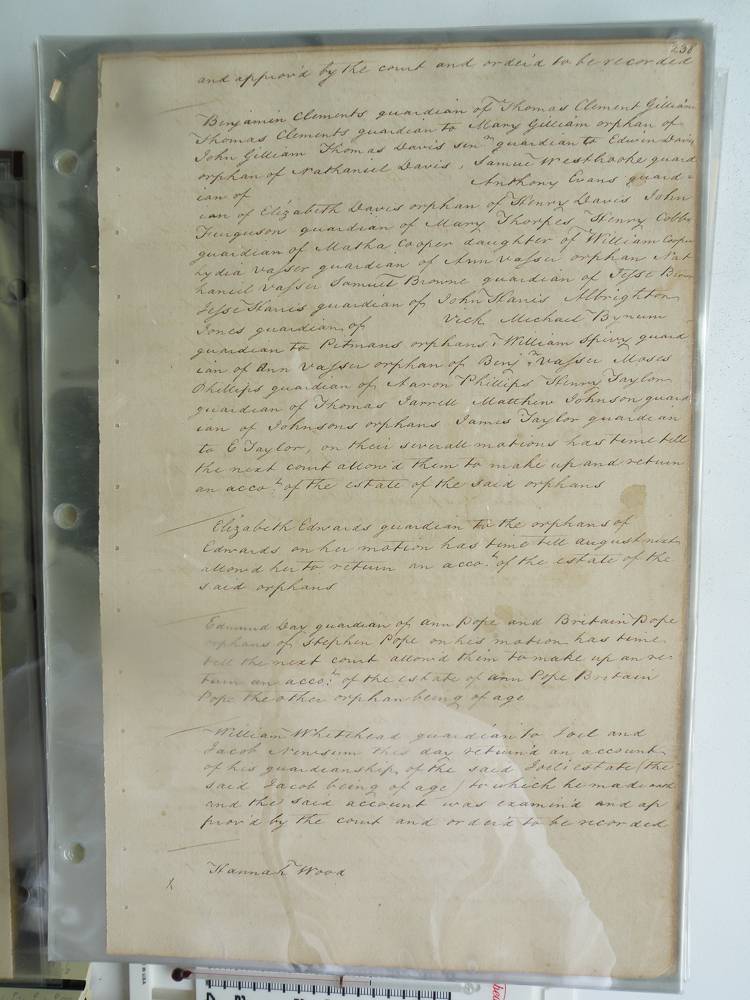 238
and approv'd by the court and order'd to be recorded
Benjamin Clements guardian of Thomas Clement Gilliam
Thomas Clements guardian to Mary Gilliam orphan of
John Gilliam Thomas Davis sen.r guardian to Edwin Davis
orphan of Nathaniel Davis, Samuel Westbrooke guard
ian of Anthony Evans guard
ian of Elizabeth Davis orphan of Henry Davis John
Ferguson guardian of Mary Thorpes Henry Cobbs
guardian of Matha Cooper daughter of William Cooper
Lydia Vasser guardian of Ann Vasser orphan Nat
haniel Vasser Samuel Browne guardian of Jesse Brown
Jesse Harris guardian of John Harris Albrighton
Jones guardian of Vick Michael Bynum
guardian to Pitmans orphans, William Spivy guard
ian of Ann Vasser orphan of Benj.n Vasser Moses
Phillips guardian of Aaron Phillips Henry Taylor
guardian of Thomas Jarrell Matthew Johnson guard
ian of Johnsons orphans James Taylor guardian
to E Taylor, on their severall motions has time till
the next court allow'd them to make up and return
an acco.t of the estate of the said orphans
Elizabeth Edwards guardian to the orphans of
Edwards on her motion has time till august next
allow'd her to return an acco.t of the estate of the
said orphans
Edmund Day guardian of ann Pope and Britain Pope
orphans of Stephen Pope on his motion has time
till the next court allow'd them to make up an re-
turn an acco.t of the estate of ann Pope Britain
Pope the other orphan being of age
William Whitehead guardian to Joel and
Jacob Newsum this day return'd an account
of his guardianship of the said Joels estate (the
said Jacob being of age) to which he made oath
and the said account was examin'd and ap
prov'd by the court and order'd to be recorded
Hannah Wood